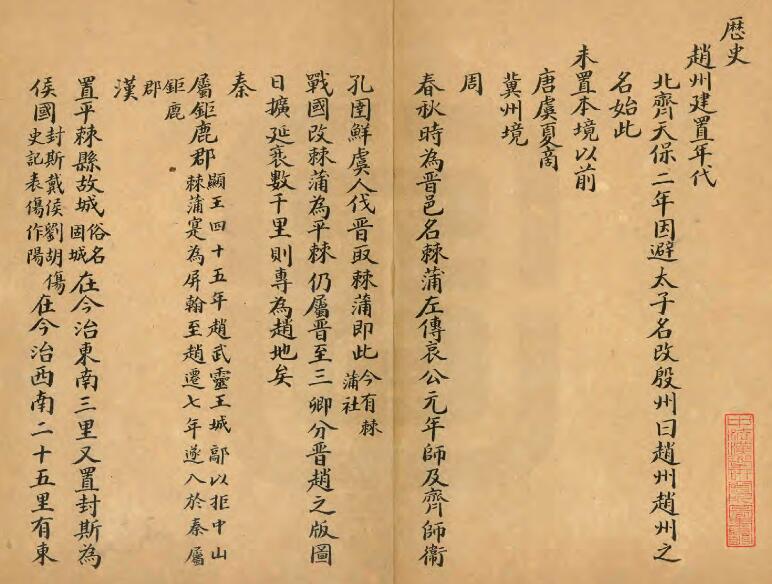 歷史
趙州建置年代
北齊天保二年因避太子名改殷州曰趙州趙州之
名始此
未置本境以前
唐虞夏商
冀州境
周
春秋時為晉邑名棘蒲左傳哀公元年師及齊師衞
孔圉鮮虞人伐晉取棘蒲即此今有棘
蒲社
戰國改棘蒲為平棘仍屬晉至三卿分晉趙之版圖
日擴延袤數千里則專為趙地矣
秦
屬鉅鹿郡顯王四十五年趙武靈王城鄗以拒中山
棘蒲寔為屏翰至趙遷七年遂入於秦屬
鉅鹿
郡
漢
置平棘縣故城俗名
固城在今治東南三里又置封斯為
侯國封斯戴侯劉胡傷
史記表傷作陽在今治西南二十五里有東